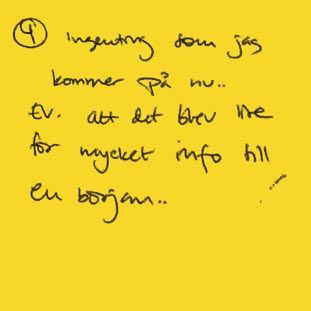 ④ Ingenting som jag
kommer på nu..
Ev. att det blev lite
för mycket info till
en början..